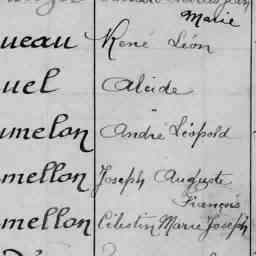 Marie
ueau René Léon
uel Alcide
umelon André Léopold
mellon Joseph Auguste
François
mellon Célestin Marie Joseph